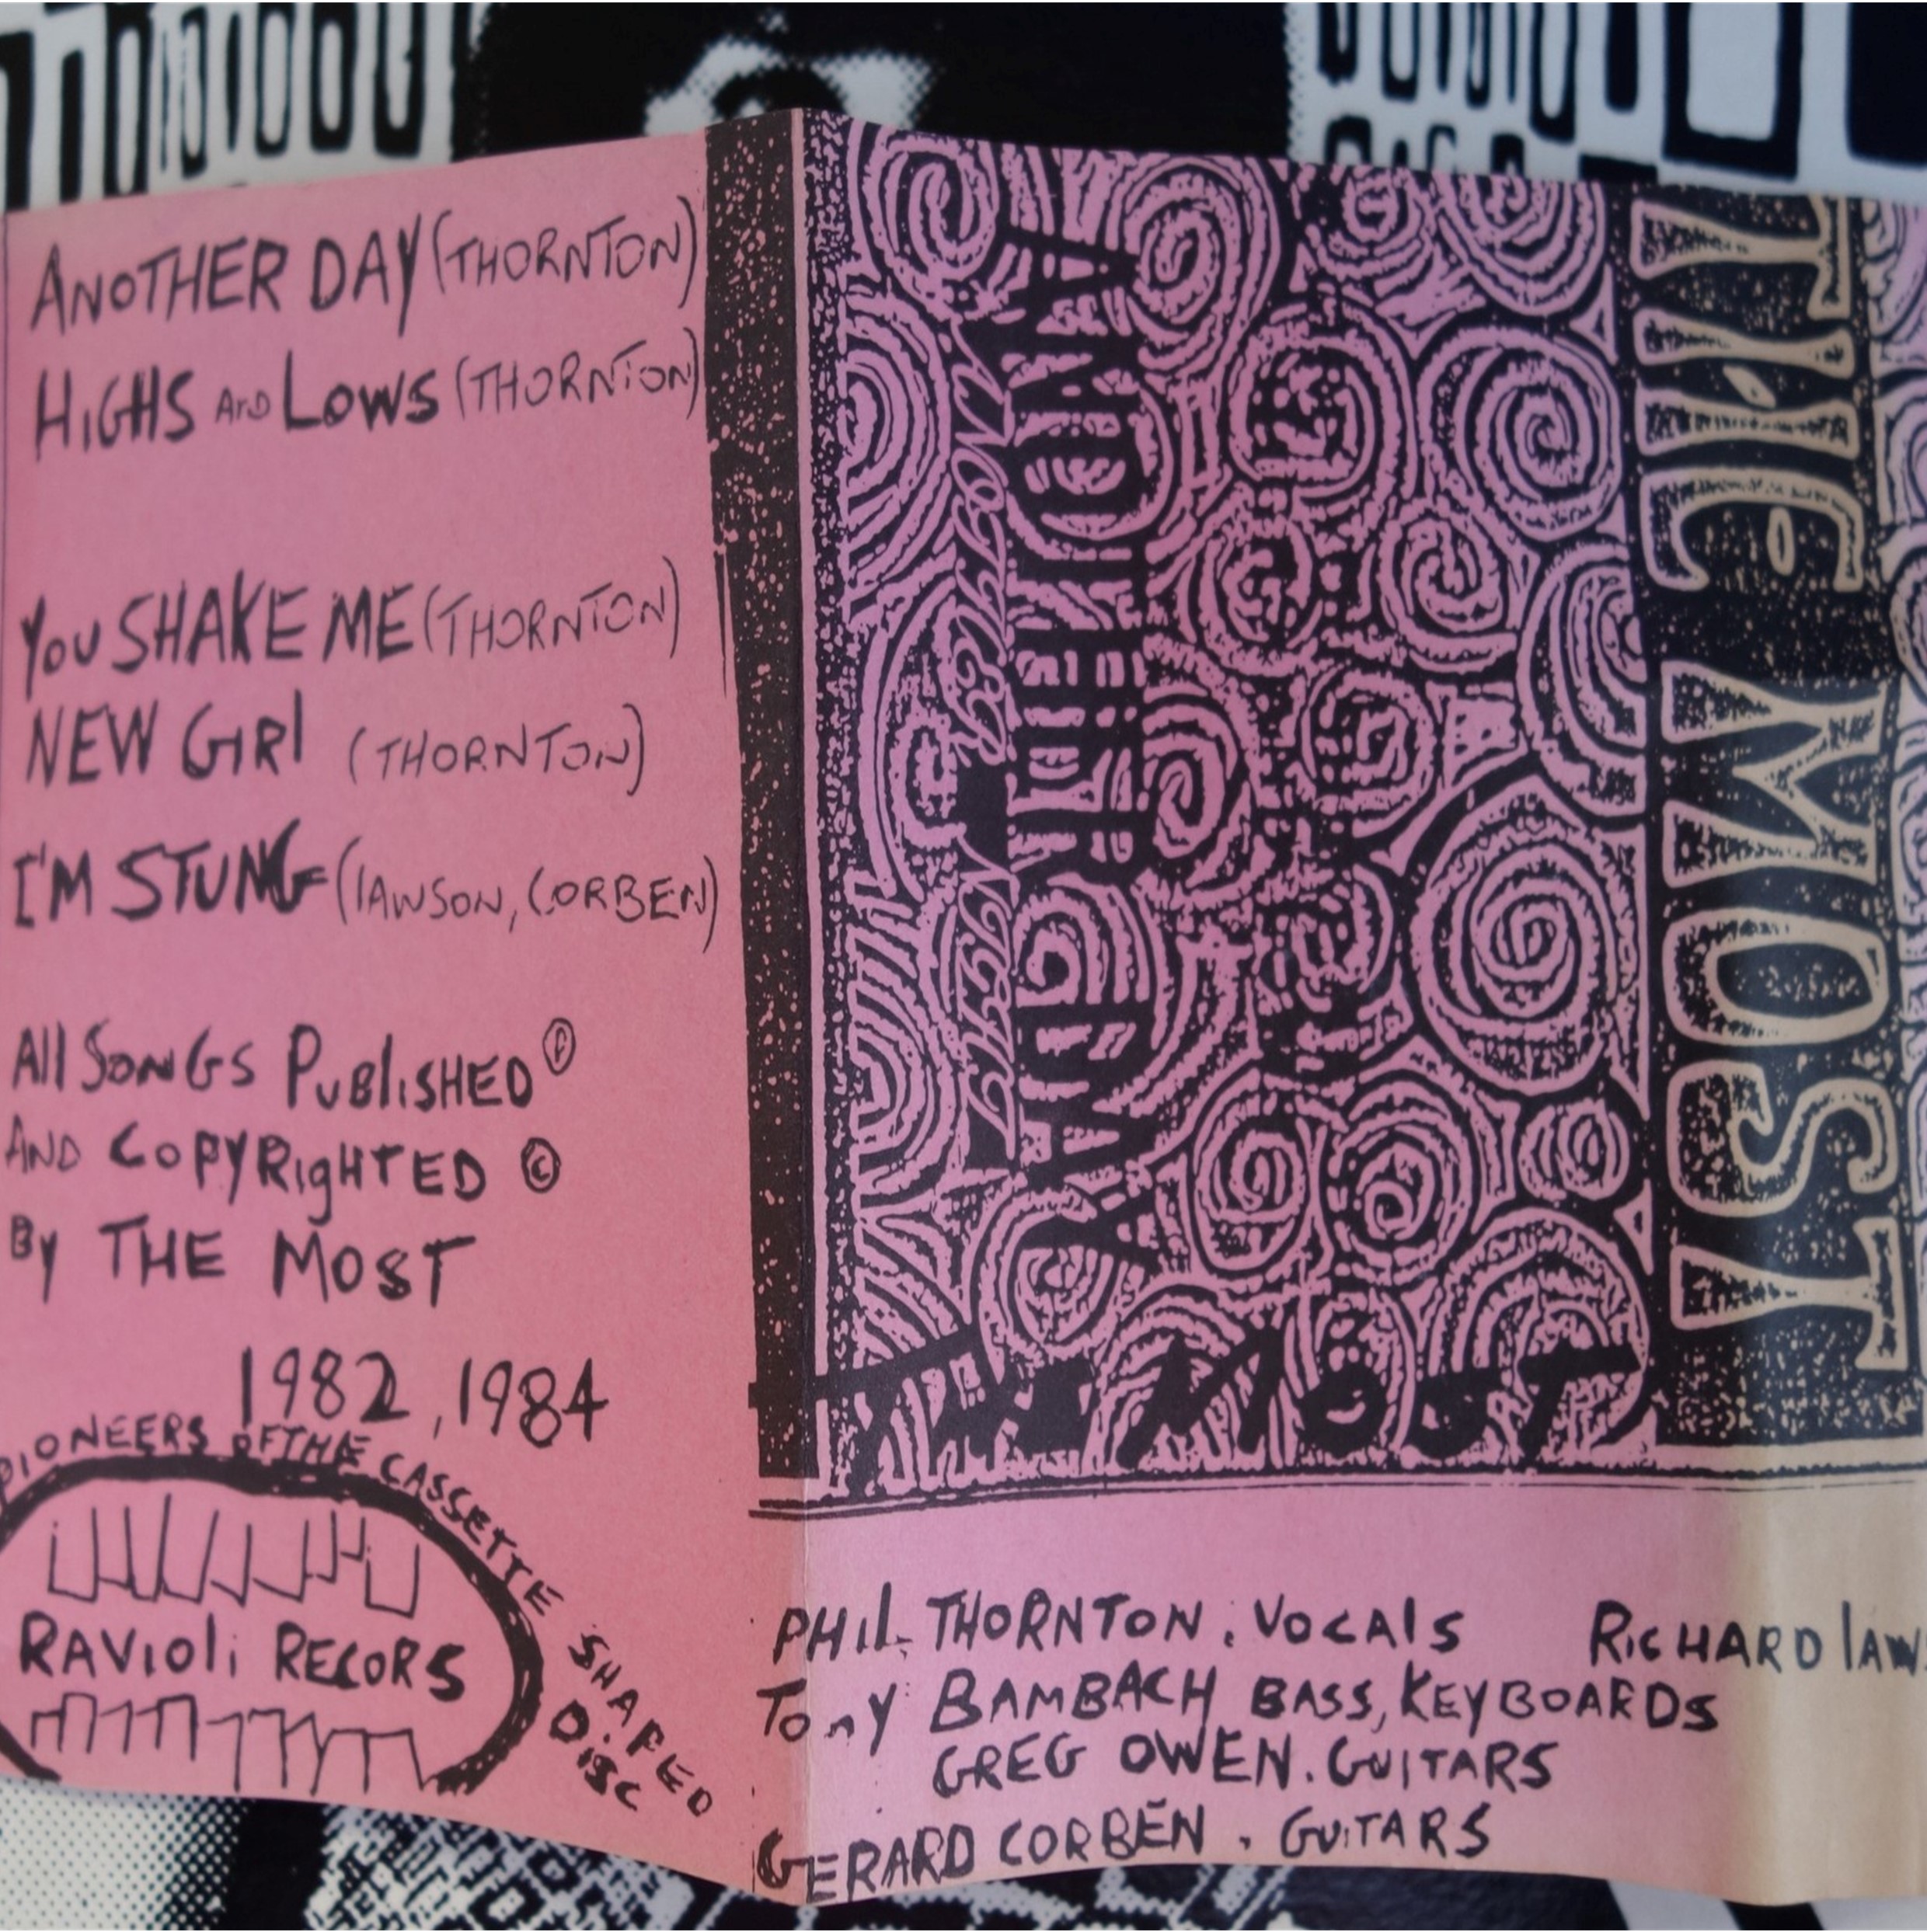 ANOTHER DAY (THORNTON)
HIGHS AND LOWS (THORNTON)
YOU SHAKE ME (THORNTON)
NEW GIRL (THORNTON)
I'M STUNG (LAWSON, CORBEN)
All SONGS PUBLISHED Ⓟ
AND COPYRIGHTED ©
By THE MOST
1982, 1984
PIONEERS OF THE CASSETTE SHAPED DISC
RAVIOLI RECORS
THE MOST
THE MOST
PHIL THORNTON. VOCALS RICHARD LAW
TONY BAMBACH BASS, KEYBOARDS
GREG OWEN. GUITARS
GERARD CORBEN. GUITARS